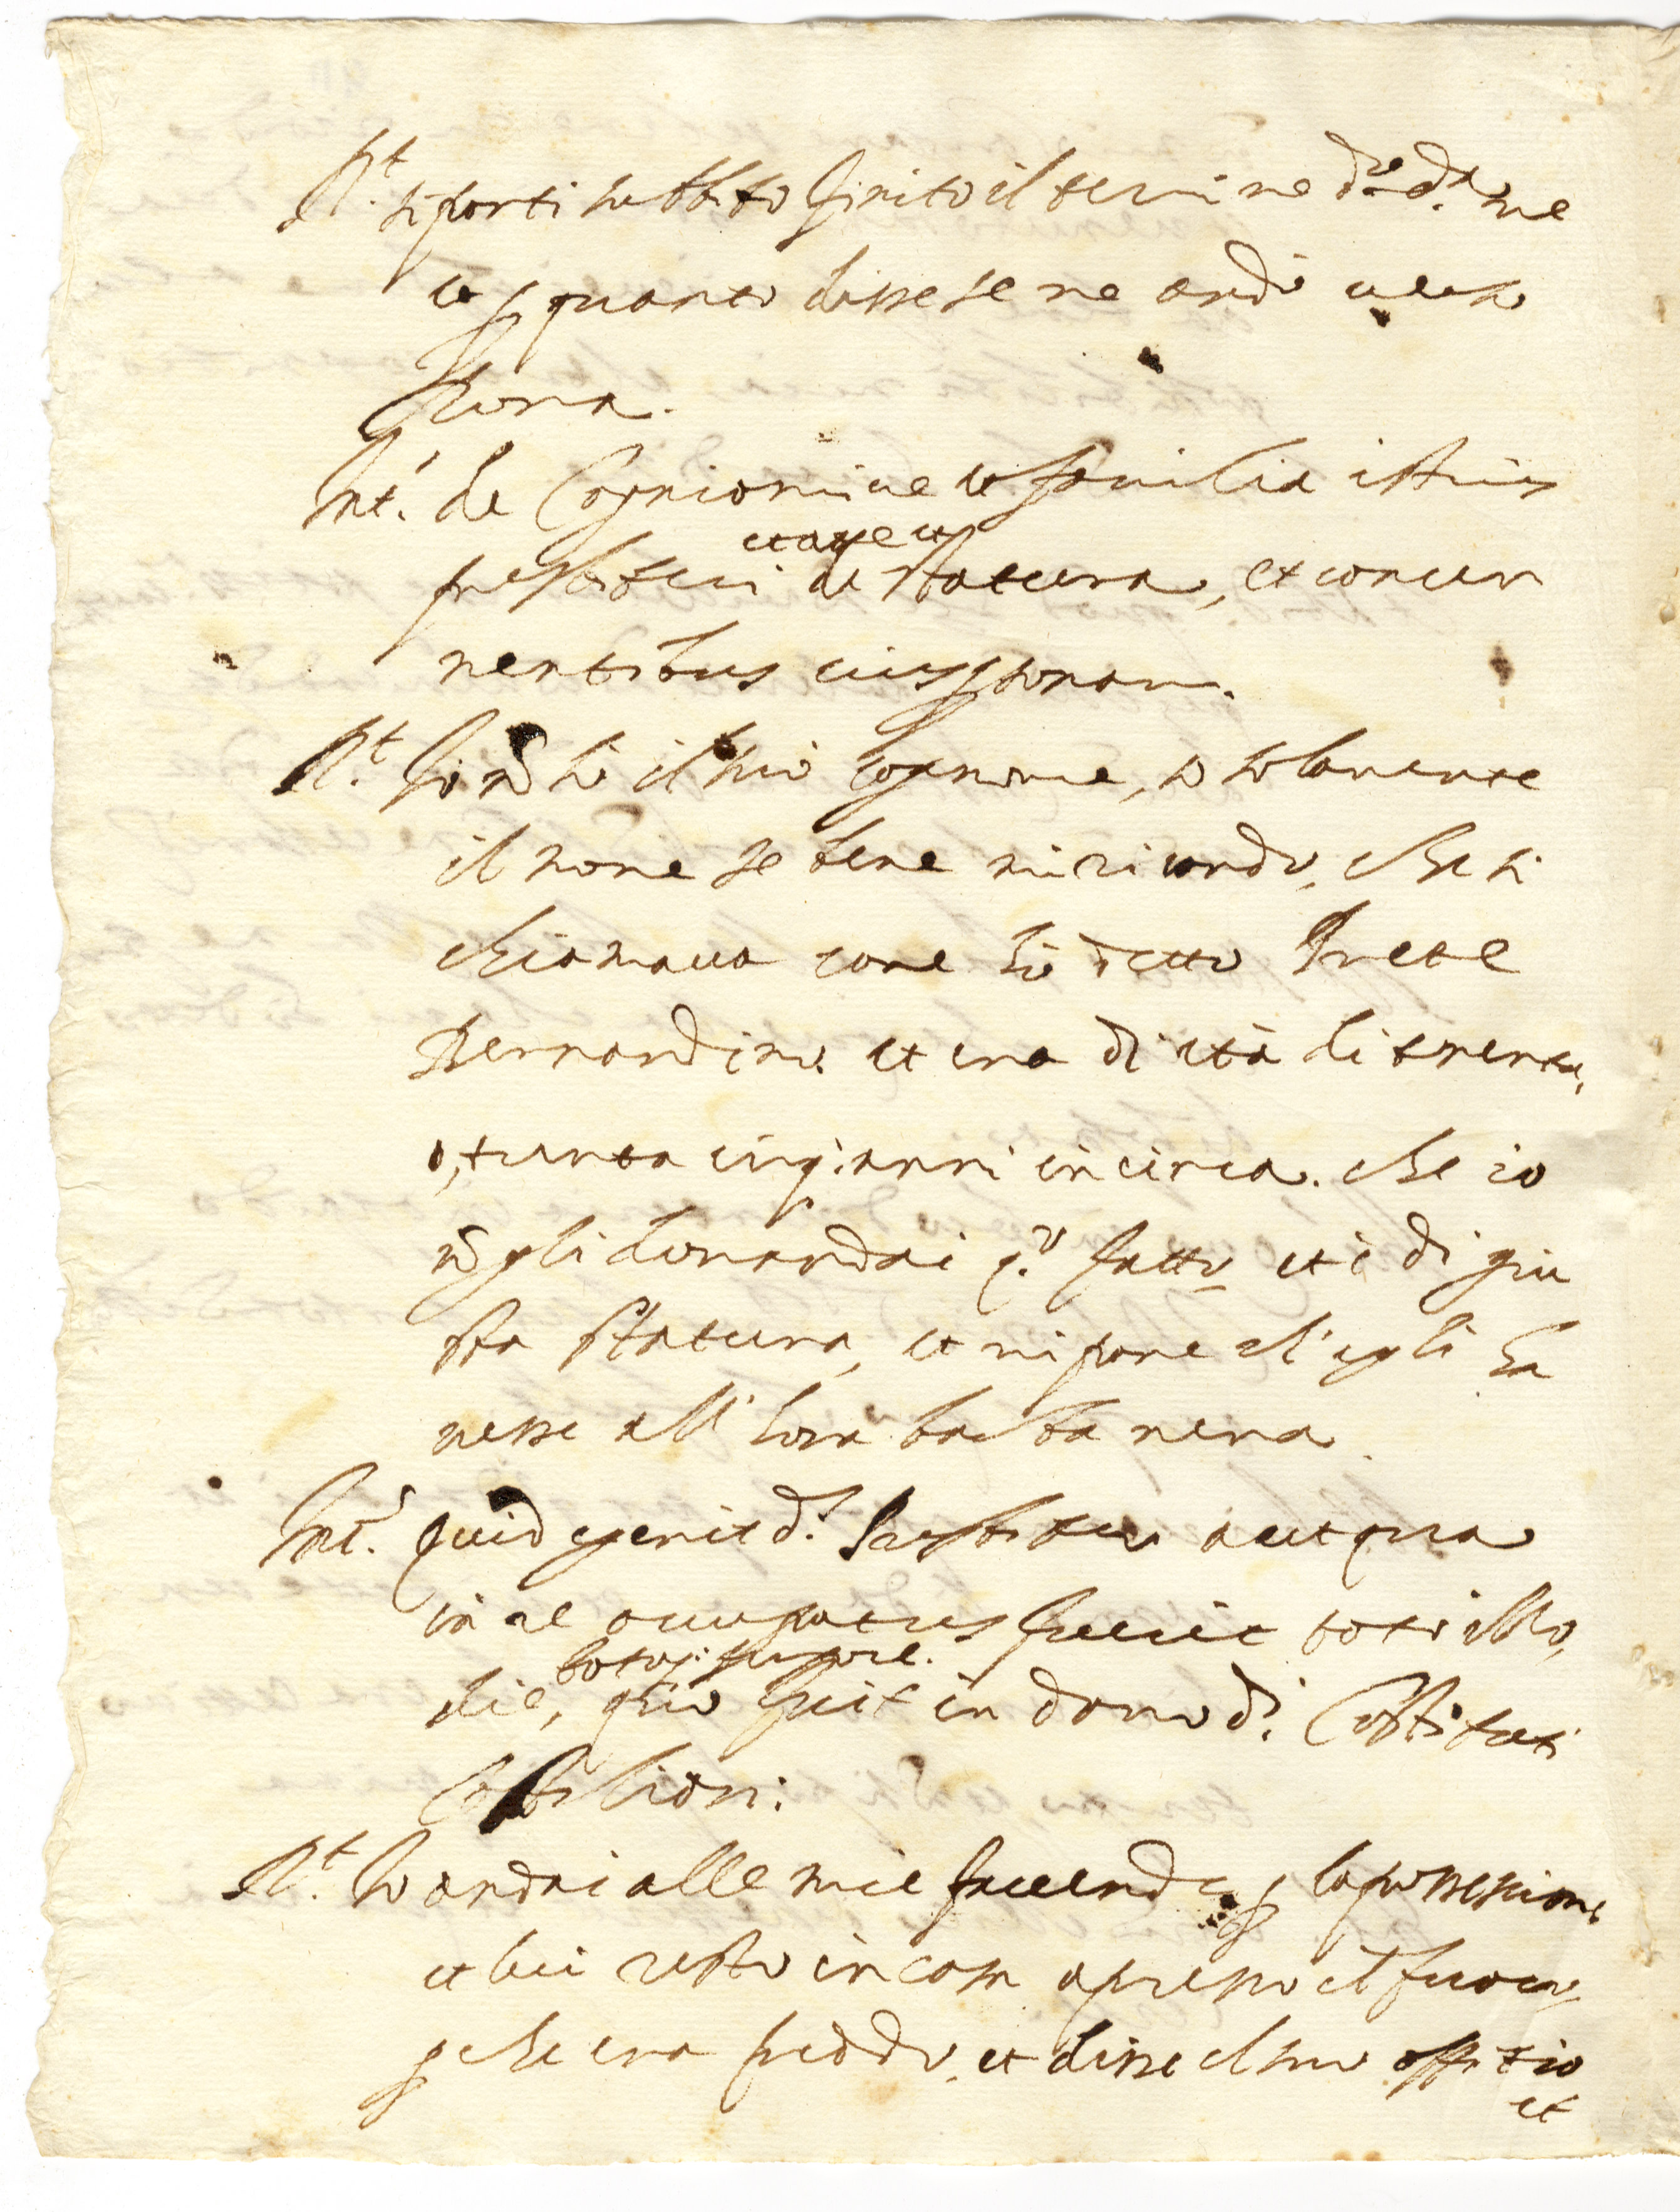 R.t si partì subbito finito il termine d.o d.a me
et p quanto disse se ne andò verso
Roma.
Int.s de Cognomine et familia istius
presbiteri
etate et
de statura, et concur
rentibus eius psonam.
R.t Io nō sò il suo cognome, so solamente
il nome se bene mi ricordo, che si
chiamava come hò detto Prete
Bernardino et era di età di trenta,
o, trenta cinq. anni in circa. che io
nō gli domandai q.o fatto et è di giu
sta statura, et mi pare ch'egli ha
vesse all'hora barba nera
Int.s quid egerit d.s Presbiter aut qua
in re occupatus fuerit toto illo
die,
totoq. tempore.
quo fuit in domo d.i Costituti
R.t Io andai alle mie facende p la possessione
et lui restò in casa apresso il fuoco
p che era freddo, et disse il suo offitio
et